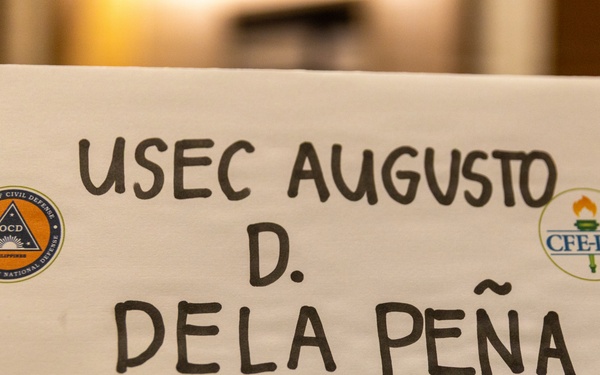 USEC AUGUSTO
D.
DELA PEÑA
CIVIL DEFENSE
OCD
NATIONAL DEFENSE